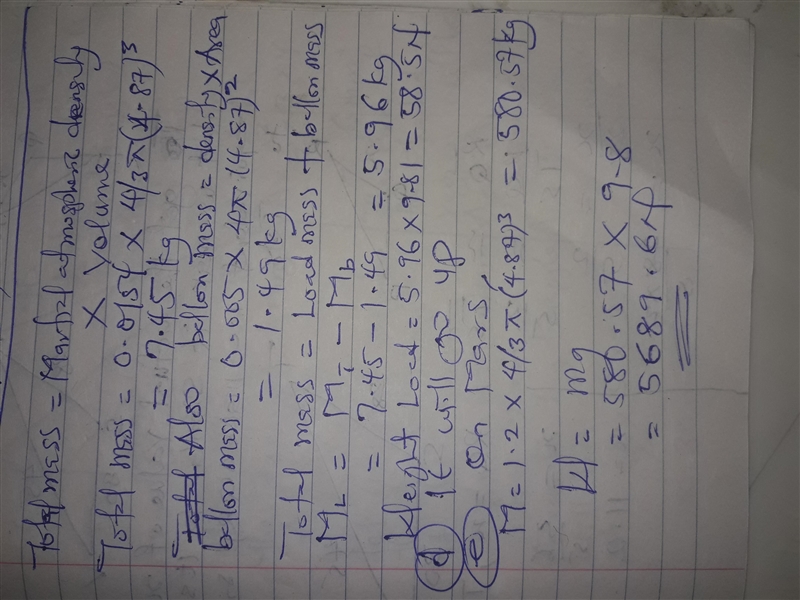 Total mass = Martial atmosphere density
x volume
Total mass = 0.0154 x 4/3π(4.87)³
= 7.45 kg
Total Also ballon mass = density x Area
ballon mass = 0.005 x 4π(4.87)²
= 1.49kg
Total mass = Load mass + ballon mass
ML = MT - Mb
= 7.45 - 1.49 = 5.96 kg
Weight Load = 5.96 x 9.81 = 58.5N
d It will go up
e on Mars
M = 1.2 x 4/3π(4.87)³ = 580.57kg
W = mg
= 580.57 x 9.8
= 5689.6N